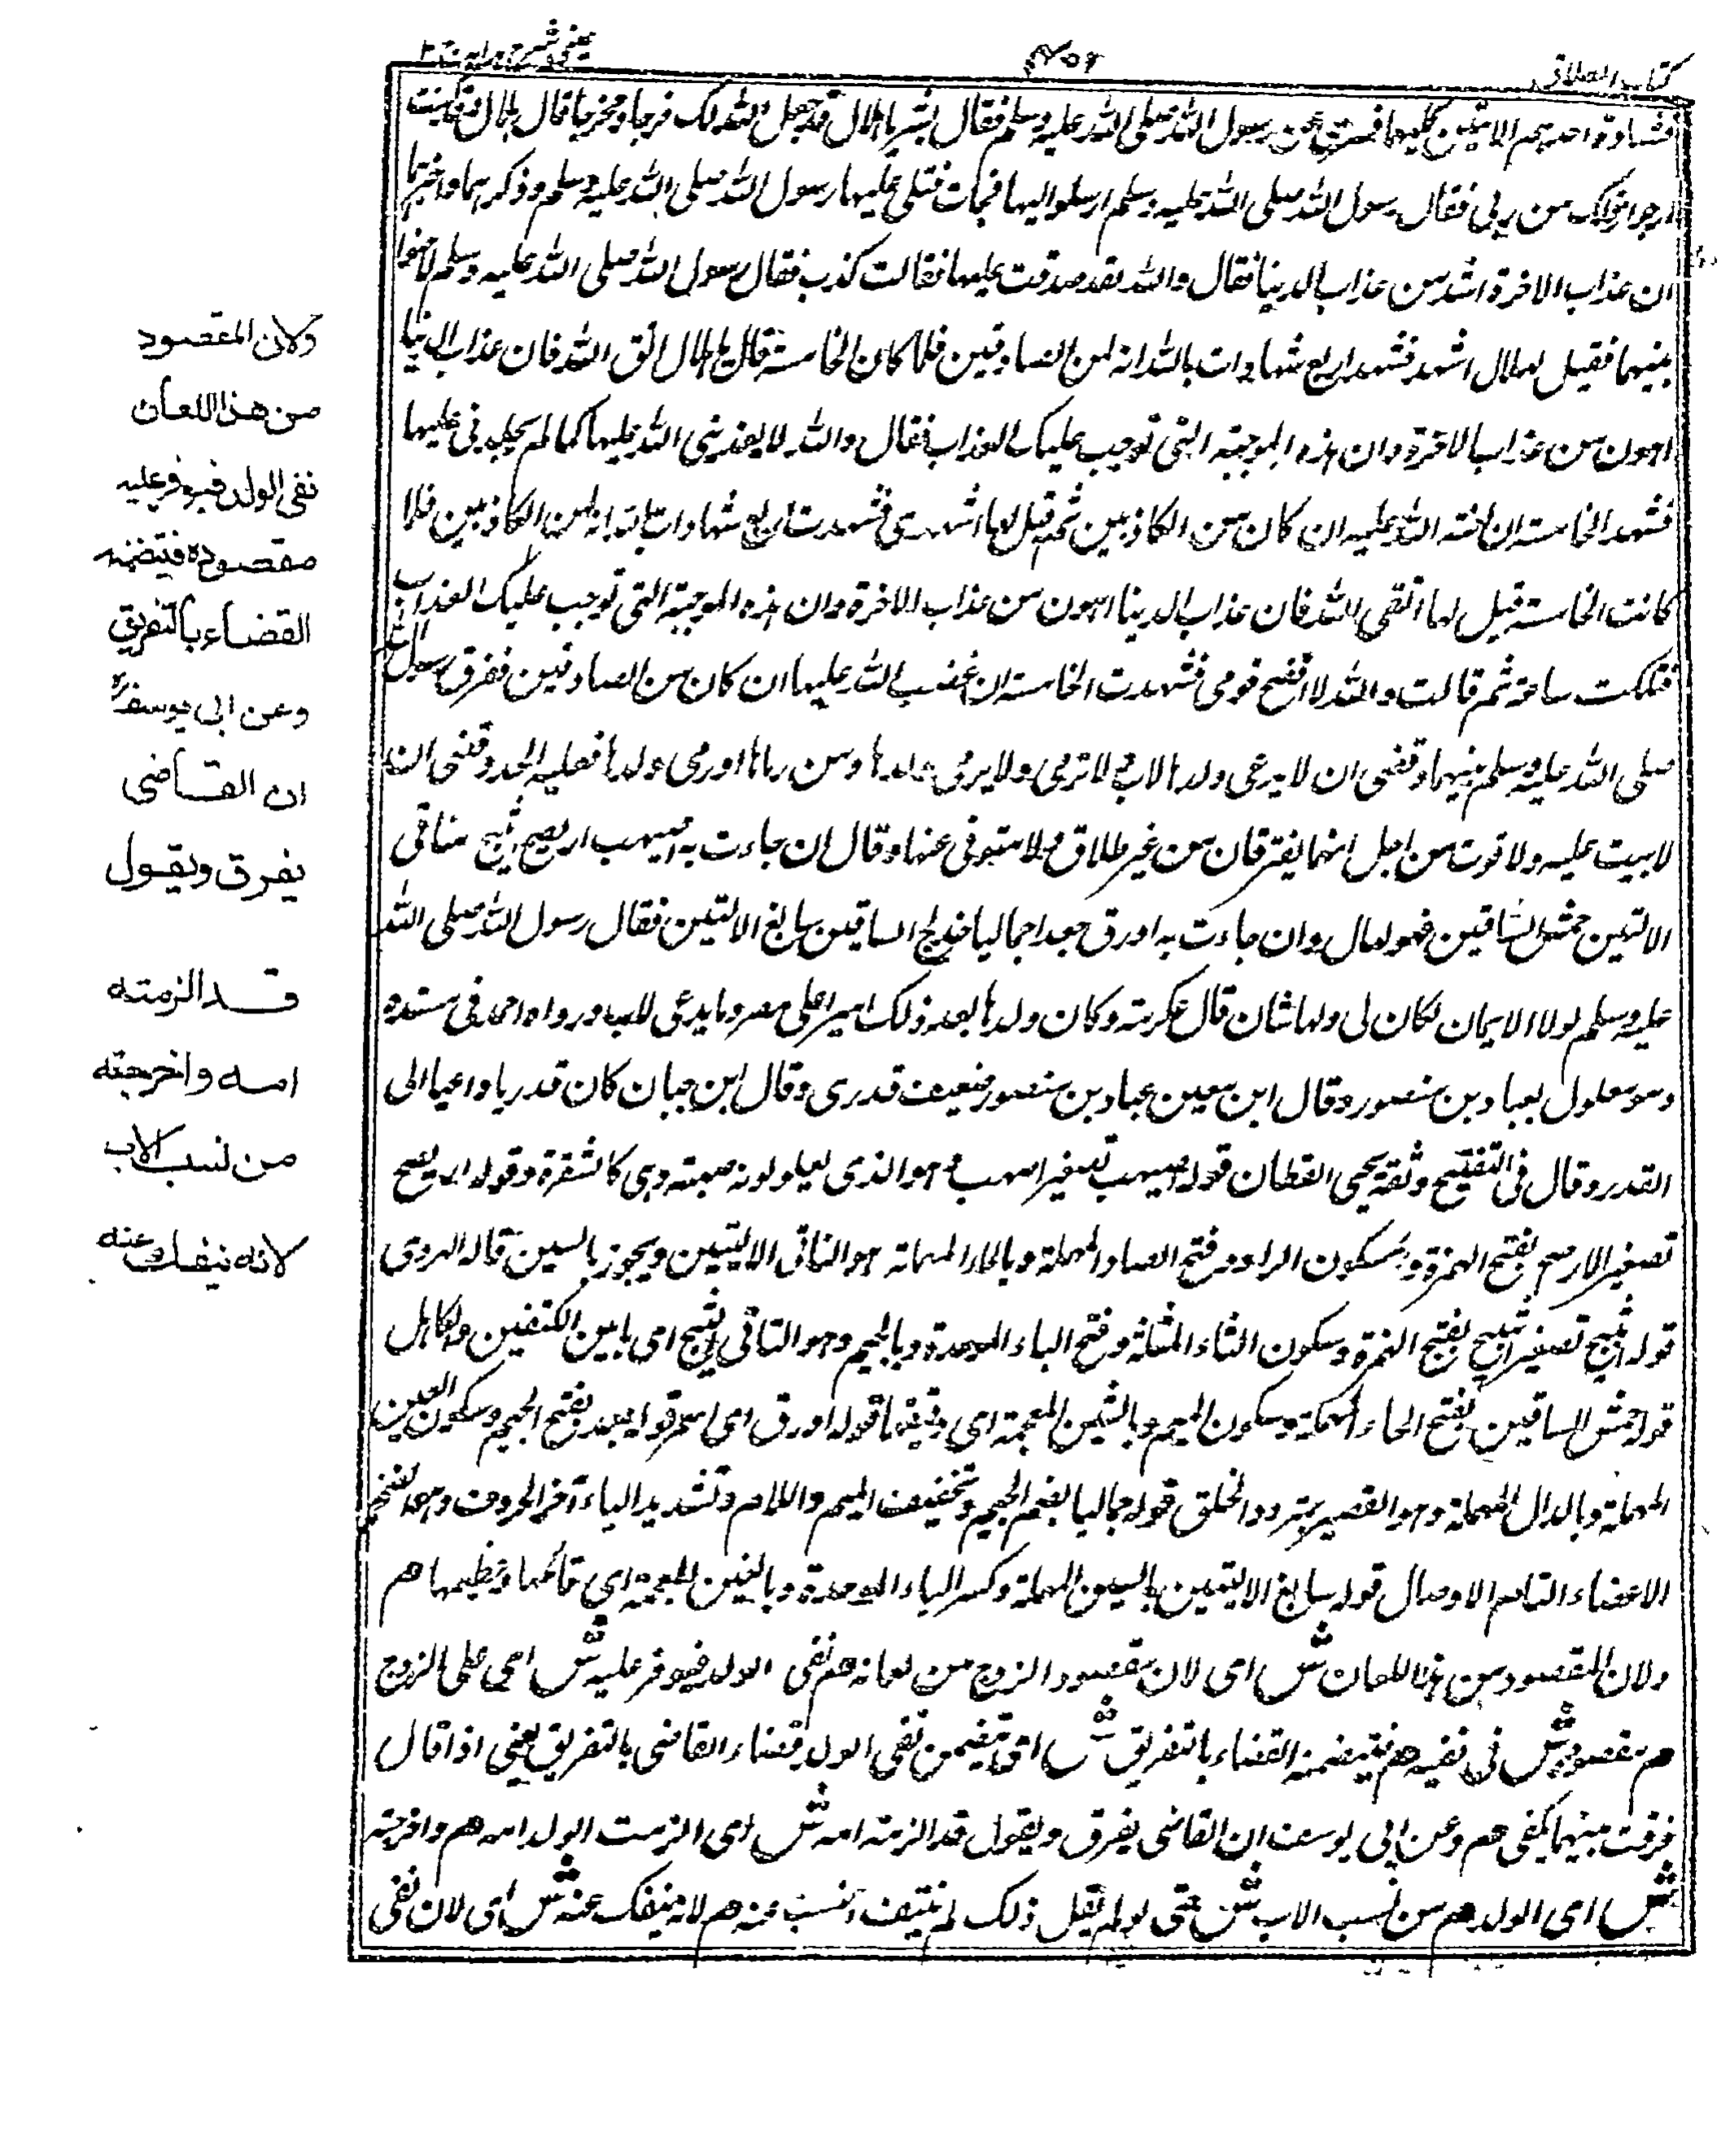 كتاب الطلاق
عينى شرح هدايه
شهادة احدهم الايتين كليهما فسرى عن رسول الله صلى الله عليه وسلم فقال ابشر يا هلال قد جعل الله لك فرجا ومخرجا قال هلال وقد كنت
ارجوا ذلك من ربى فقال رسول الله صلى الله عليه وسلم ارسلوا اليها فجاءت فتلى عليها رسول الله صلى الله عليه وسلم وذكرهما واخبرهما
ان عذاب الاخرة اشد من عذاب الدنيا فقال والله لقد صدقت عليها فقالت كذب فقال رسول الله صلى الله عليه وسلم لاعنوا
بينهما فقيل لهلال اشهد فشهد اربع شهادات بالله انه لمن الصادقين فلما كان الخامسة قال يا هلال اتق الله فان عذاب الدنيا
اهون من عذاب الاخرة وان هذه الموجبة التى توجب عليك العذاب فقال والله لا يعذبنى الله عليها كما لم يجلدنى عليها
فشهد الخامسة ان لعنة الله عليه ان كان من الكاذبين ثم قيل لها اشهدى فشهدت اربع شهادات بالله انه لمن الكاذبين فلما
كانت الخامسة قيل لها اتقى الله فان عذاب الدنيا اهون من عذاب الاخرة وان هذه الموجبة التى توجب عليك العذاب
فتلكت ساعة ثم قالت والله لا افضح قومى فشهدت الخامسة ان غضب الله عليها ان كان من الصادقين ففرق رسول الله
صلى الله عليه وسلم بينهما وقضى ان لا يدعى ولدها لاب ولا ترمى ولا يرمى ولدها ومن رماها او رمى ولدها فعليه الحد وقضى ان
لا بيت عليه ولا قوت من اجل انهما يفترقان من غير طلاق ولا متوفى عنها وقال ان جاءت به اصيهب اريصح اثيبج ناتى
الاليتين حمش الساقين فهو لهلال وان جاءت به اورق جعدا جماليا خدلج الساقين سابغ الاليتين فقال رسول الله صلى الله
عليه وسلم لولا الايمان لكان لى ولها شان قال عكرمة وكان ولدها بعد ذلك اميرا على مصر وما يدعى لاب ورواه احمد فى مسنده
وهو معلول بعباد بن منصور وقال ابن معين عباد بن منصور ضعيف قدرى وقال ابن حبان كان قدريا داعيا الى
القدر وقال فى التنقيح وثقه يحيى القطان قوله اصيهب تصغير اصهب هو الذى يعلو لونه صهبة وهى كالشقرة وقوله اريصح
تصغير الارصح بفتح الهمزة وبسكون الراء وفتح الصاد المهملة وبالحاء المهملة هو الناتى الاليتين ويجوز بالسين قاله الهروى
قوله اثيبج تصغير اثبج بفتح الهمزة وسكون الثاء المثلثة وفتح الباء الموحدة وبالجيم وهو الناتى الثبج اى ما بين الكتفين والكاهل
قوله حمش الساقين بفتح الحاء المهملة وسكون الميم وبالشين المعجمة اى دقيقهما قوله اورق اى اسمر قوله جعد بفتح الجيم وسكون العين
المهملة وبالدال المهملة وهو القصير متردد الخلق قوله جماليا بضم الجيم وتخفيف الميم واللام وتشديد الياء آخر الحروف وهو الضخم
الاعضاء التام الاوصال قوله سابغ الاليتين بالسين المهملة وكسر الباء الموحدة وبالغين المعجمة اى تامهما وعظيمها هم
ولان المقصود من هذا اللعان ش اى لان مقصود الزوج من لعانه هم نفى الولد فيوفر عليه ش اى على الزوج
هم مقصوده ش فى نفيه هم فيتضمنه القضاء بالتفريق ش اى تضمن نفى الولد قضاء القاضى بالتفريق يعنى اذا قال
فرقت بينهما يكفى هم وعن ابى يوسف ان القاضى يفرق ويقول قد الزمته امه ش اى الزمت الولد امه هم واخرجته
ش اى الولد هم من نسب الاب ش حتى لو لم يقل ذلك لم ينتف النسب عنه هم لانه ينفك عنه ش اى لان نفى
ولان المقصود
من هذا اللعان
نفى الولد فيوفر عليه
مقصوده فيتضمنه
القضاء بالتفريق
وعن ابى يوسفؒ
ان القاضى
يفرق ويقول
قد الزمته
امه واخرجته
من نسب الاب
لانه ينفك عنه